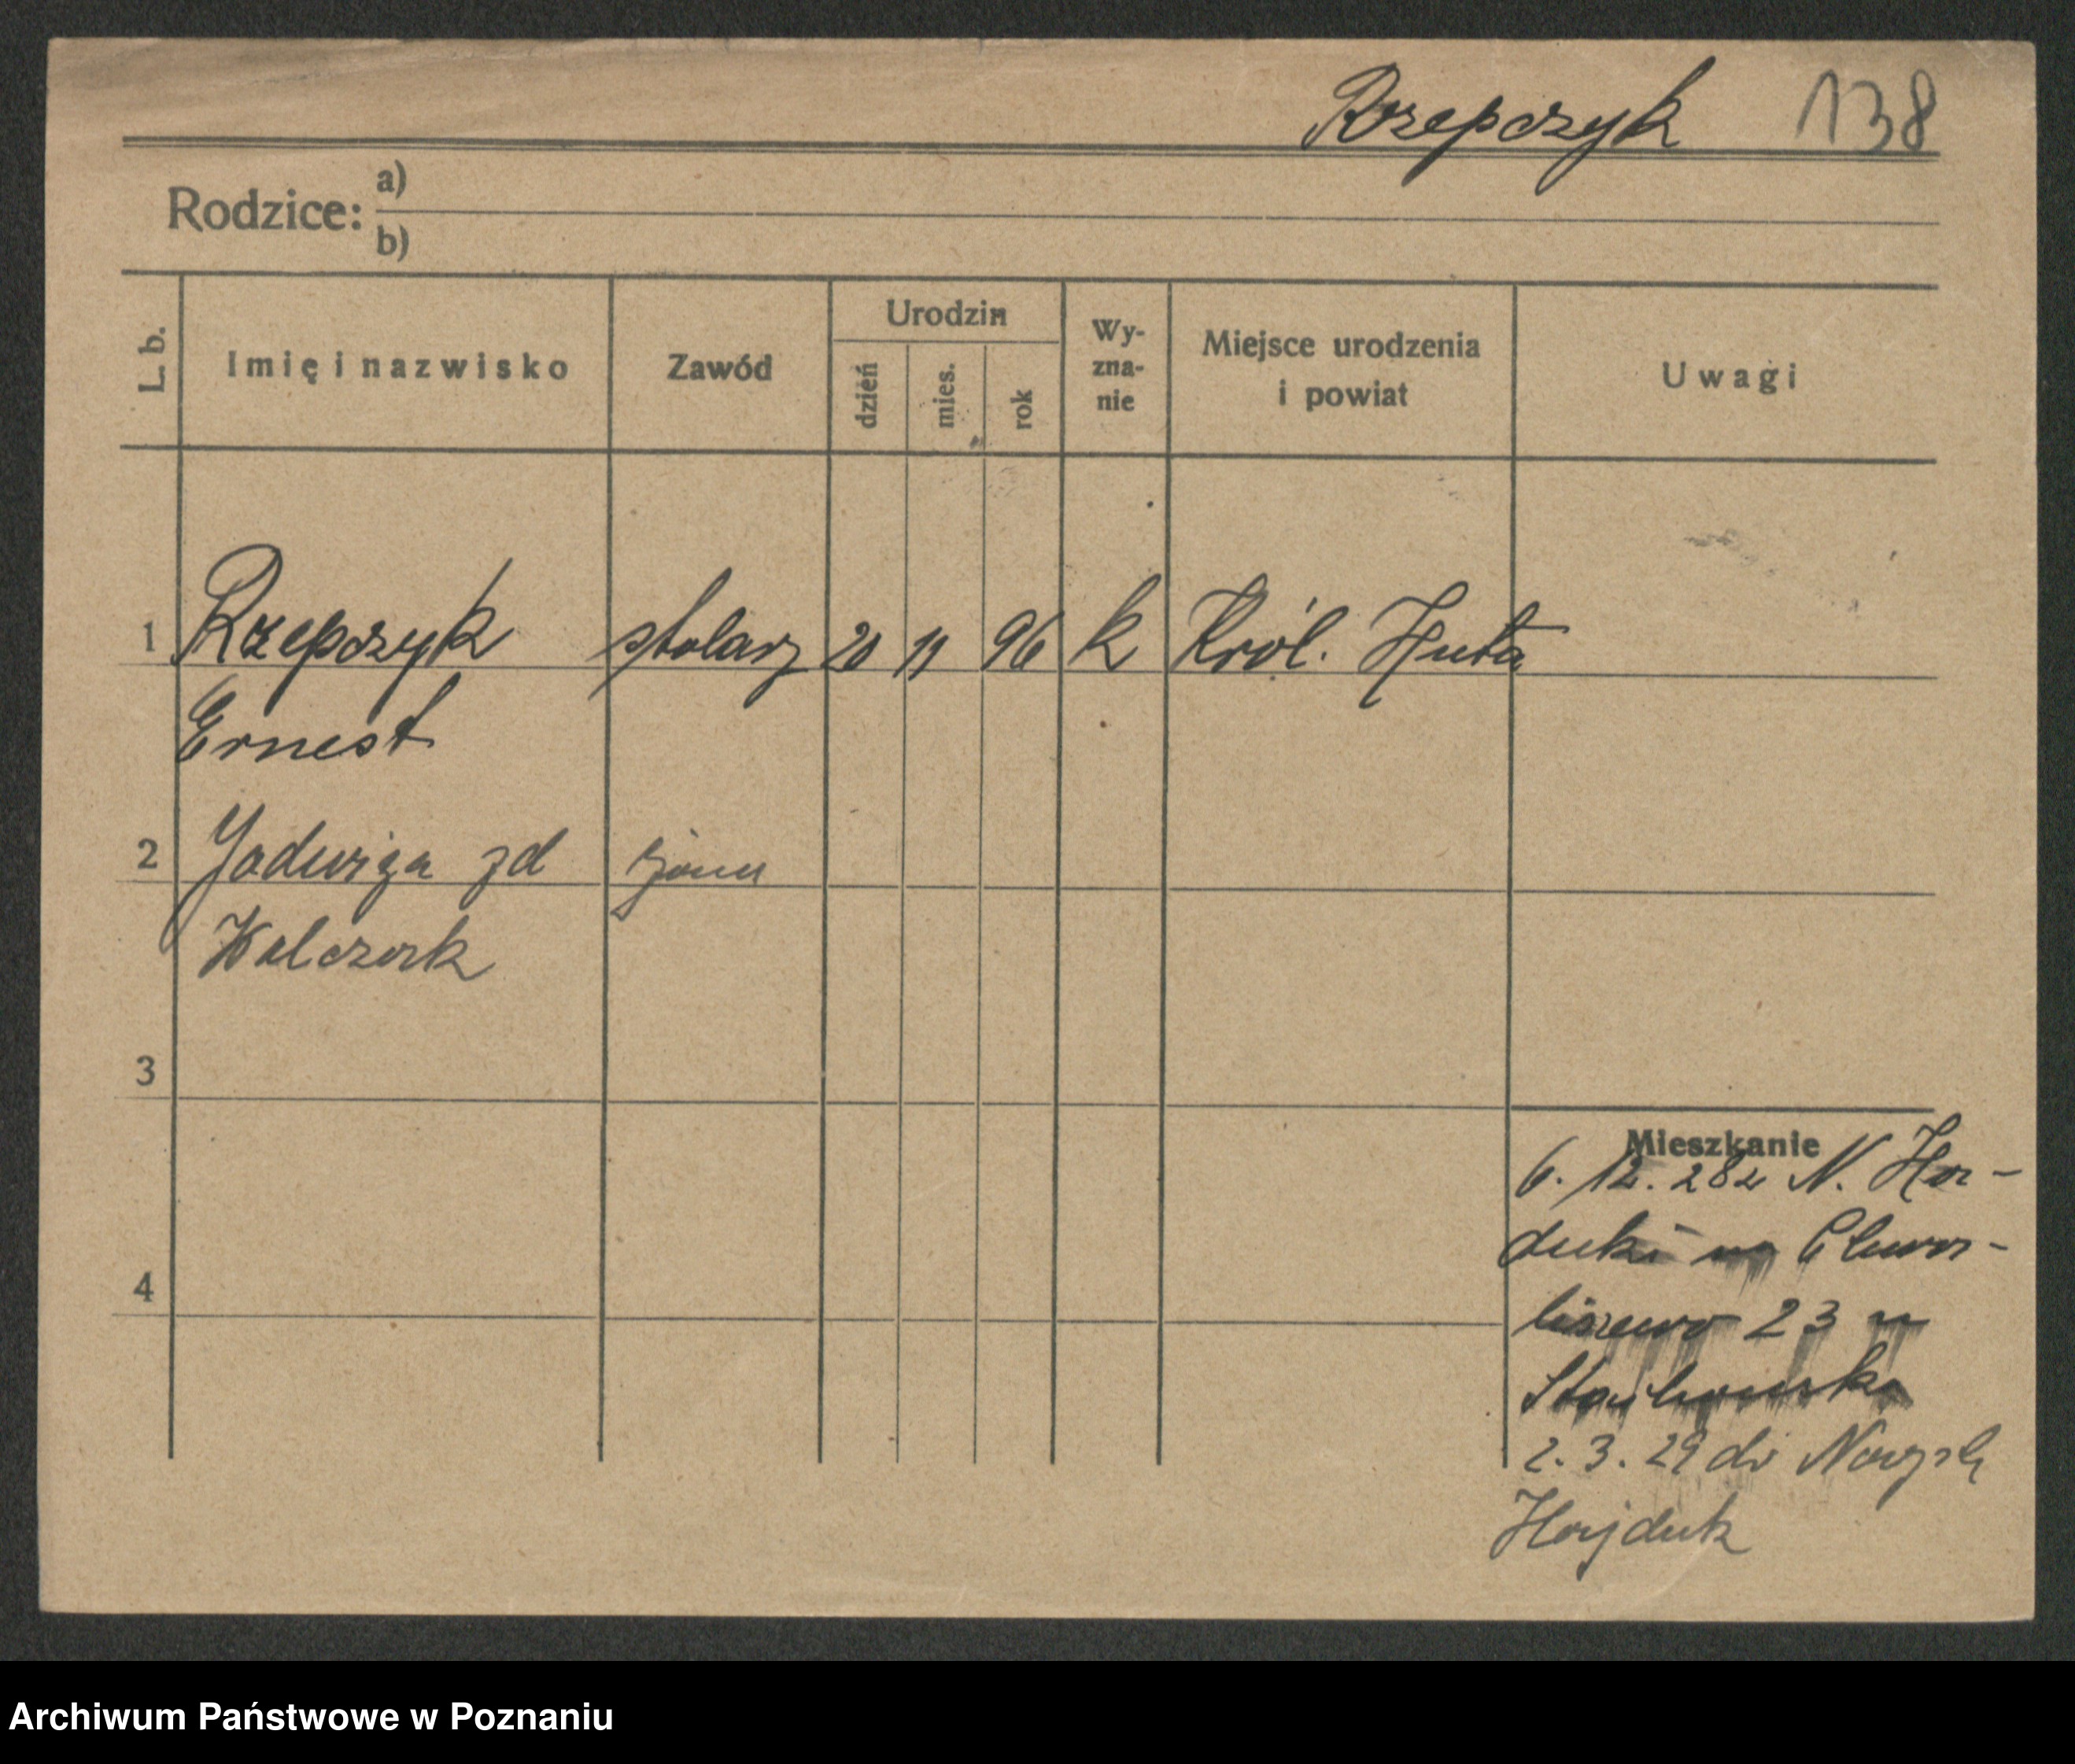 Rzepczyk 138
Rodzice: a)
b)
L. b. Imię i nazwisko Zawód Urodzin dzień mies. rok Wy-zna-nie Miejsce urodzenia i powiat Uwagi
1 Rzepczyk stolarz 20 11 96 k Król. Huta
Ernest
2 Jadwiga zd żona
Walczak
3
Mieszkanie
6. 12. 28 z N. Haj-
duki na Chwa-
4
liszewo 23 u
2. 3. 29 do Nowych
Hajduk
Archiwum Państwowe w Poznaniu